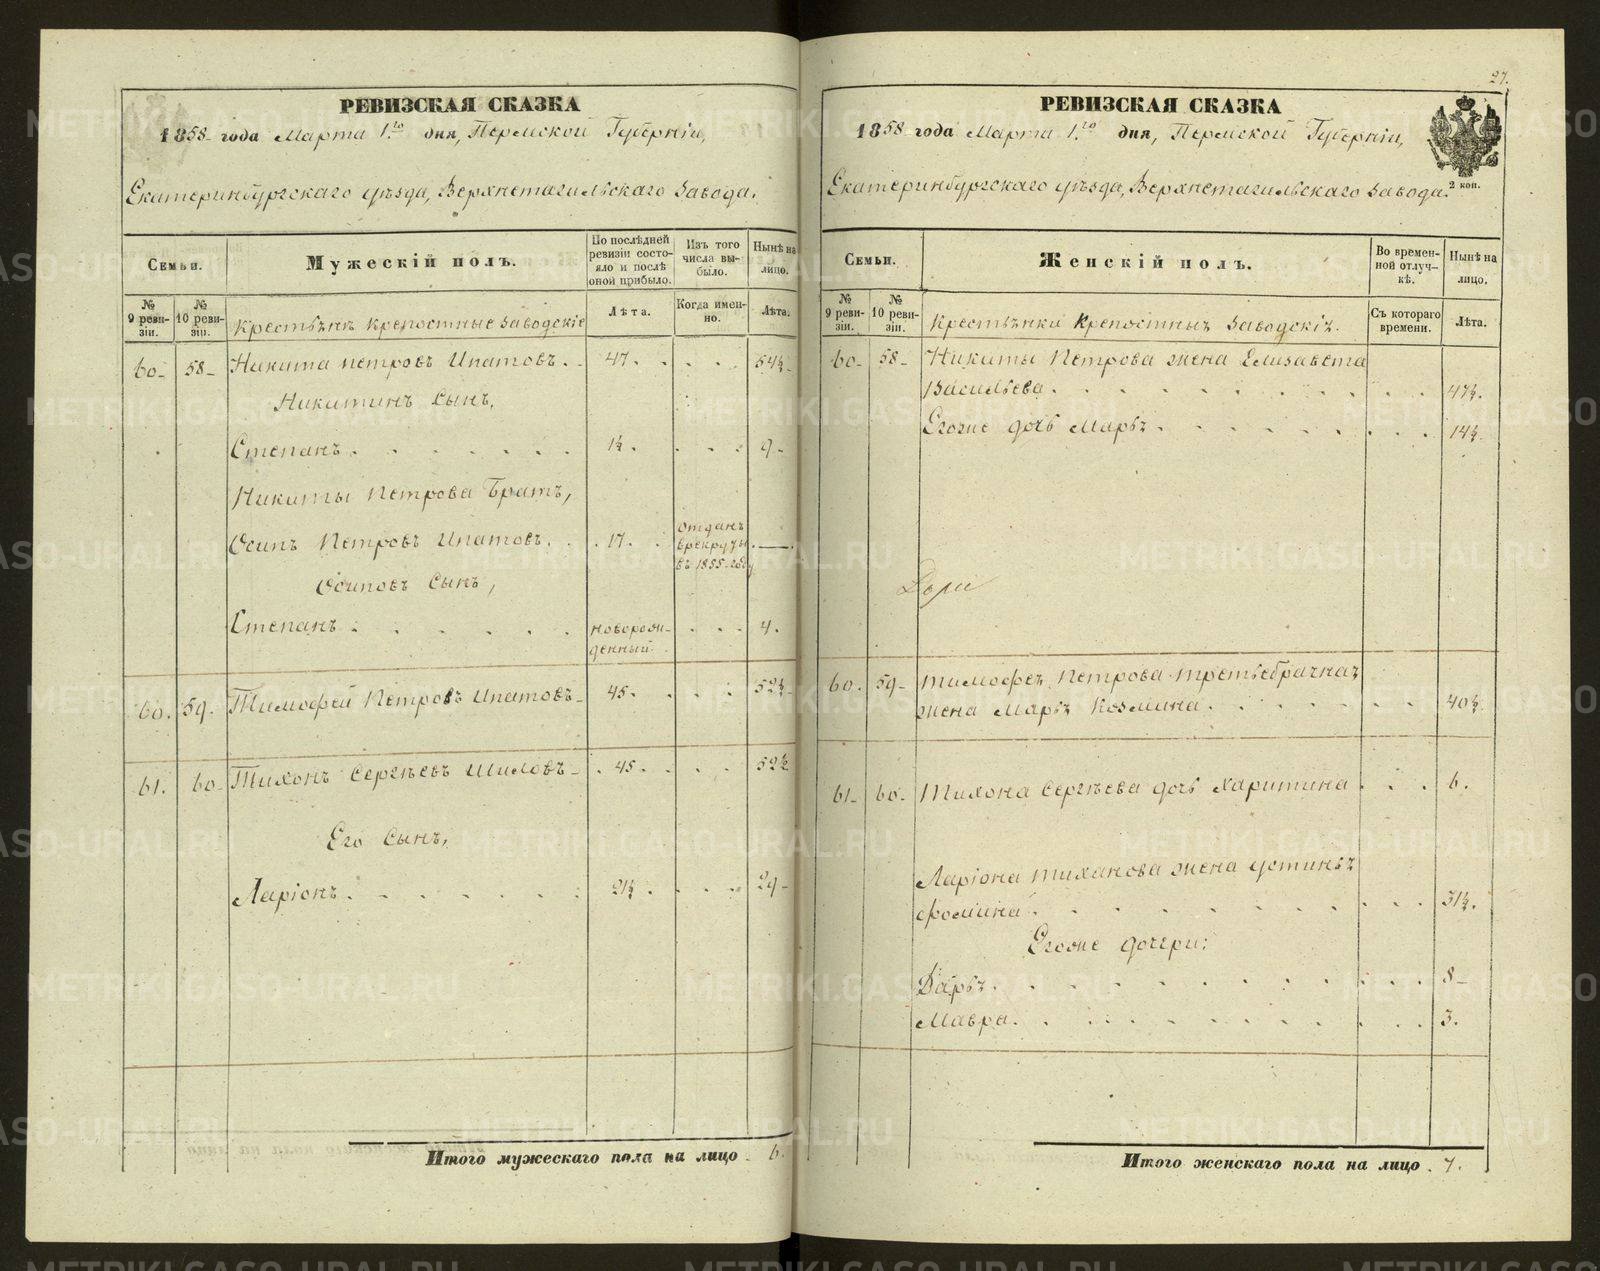 РЕВИЗСКАЯ СКАЗКА
1858 года Марта 1го дня, Пермской Губерніи,
Екатеринбургскаго уѣзда, Верхнетагильскаго Завода.
Семьи.
Мужескій полъ.
По послѣдней ревизіи состояло и послѣ оной прибыло.
Изъ того числа выбыло.
Нынѣ на лицо.
№ 9 ревизіи.
№ 10 ревизіи.
Крестьянъ крепостные Заводскіе
Лѣта.
Когда именно.
Лѣта.
60- 58- Никита Петровъ Ипатовъ. 47. 54½
Никитинъ Сынъ,
Степанъ. 1½. 9.
Никиты Петрова Братъ,
Осипъ Петровъ Ипатовъ. 17. отданъ
врекруты
въ 1855 году —
Осиповъ Сынъ,
Степанъ. новорож-
денный 4.
60. 59. Тимофей Петровъ Ипатовъ- 45. 52½
61. 60- Тихонъ Сергѣевъ Шиловъ- 45. 52½
Его Сынъ,
Ларіонъ. 21½. 29-
Итого мужескаго пола на лицо 6.
27.
РЕВИЗСКАЯ СКАЗКА
1858 года Марта 1го дня, Пермской Губерніи,
Екатеринбургскаго уѣзда, Верхнетагильскаго Завода.
2 коп.
Семьи.
Женскій полъ.
Во временной отлучкѣ.
Нынѣ на лицо.
№ 9 ревизіи.
№ 10 ревизіи.
Крестьянки Крепостныя Заводскія.
Съ котораго времени.
Лѣта.
60- 58- Никиты Петрова жена Елизавета
Васильева. 47½.
Егоже дочь Марья. 14½
60. 59- Тимофея Петрова третьебрачная
жена Марья Козмина. 40½
61- 60- Тихона Сергѣева дочь Харитина 6.
Ларіона Тиханова жена Устинья
Фомина. 31½.
Егоже дочери:
Дарья. 8-
Мавра. 3.
Итого женскаго пола на лицо 7.
METRIKI.GASO-URAL.RU